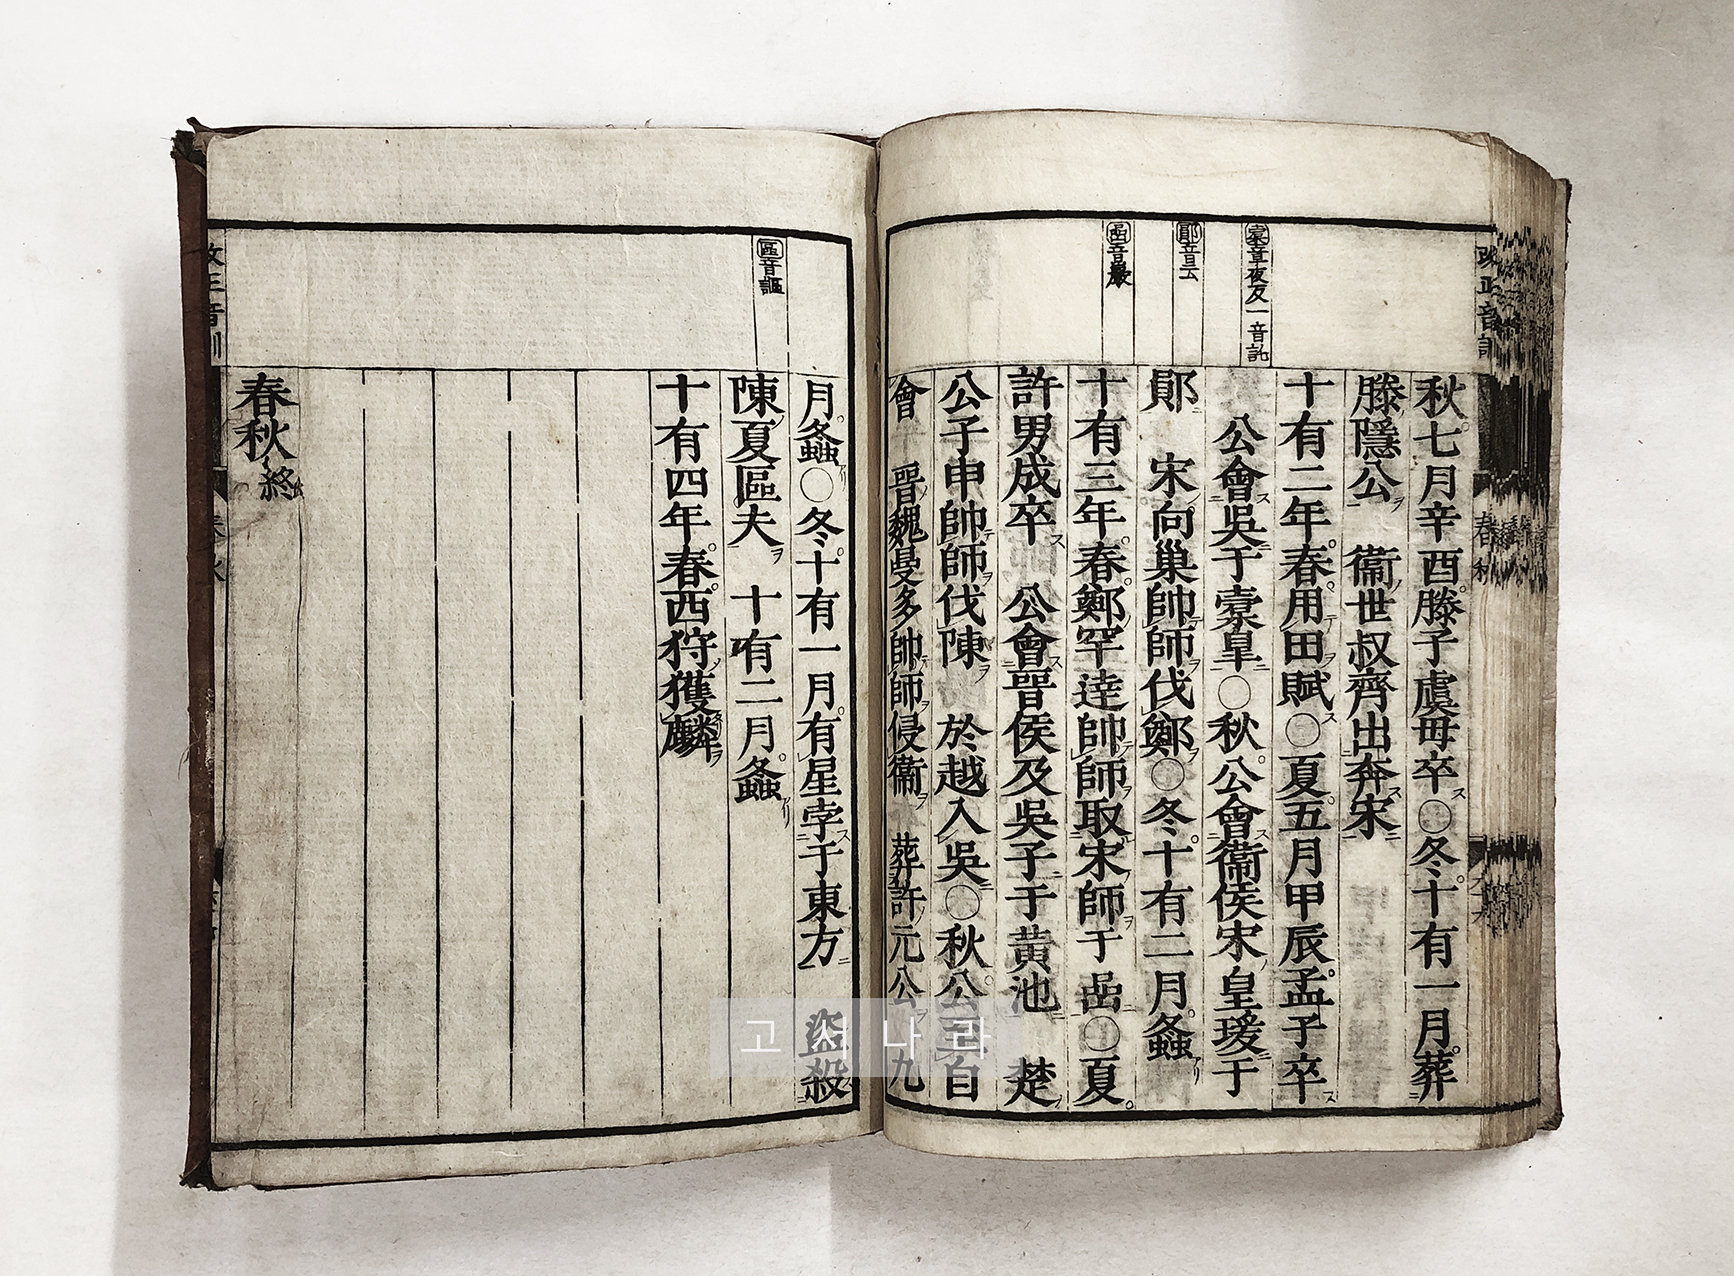 改正音訓
春秋
橐章夜反一音託
鄖音云
嵒音巖
秋七月辛酉滕子虞毋卒〇冬十有一月葬
滕隱公 衞世叔齊出奔宋
十有二年春用田賦〇夏五月甲辰孟子卒
公會吳于橐皐〇秋公會衞侯宋皇瑗于
鄖 宋向巢帥師伐鄭〇冬十有二月螽
十有三年春鄭罕達帥師取宋師于嵒〇夏
許男成卒 公會晉侯及吳子于黃池 楚
公子申帥師伐陳 於越入吳〇秋公至自
會 晉魏曼多帥師侵衞 葬許元公 九
區音謳
月螽〇冬十有一月有星孛于東方 盜殺
陳夏區夫 十有二月螽
十有四年春西狩獲麟
春秋終
改正音訓
고서나라